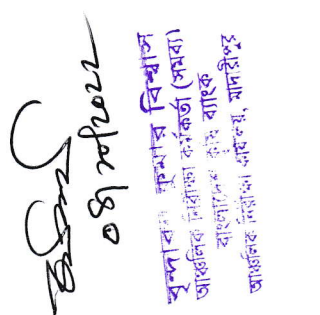 ০৪/০৮/২০২২
কুমার বিশ্বাস
আঞ্চলিক নিরীক্ষা কর্মকর্তা (সমন্বয়)
বাংলাদেশ কৃষি ব্যাংক
আঞ্চলিক নিরীক্ষা কার্যালয়, মাদারীপুর